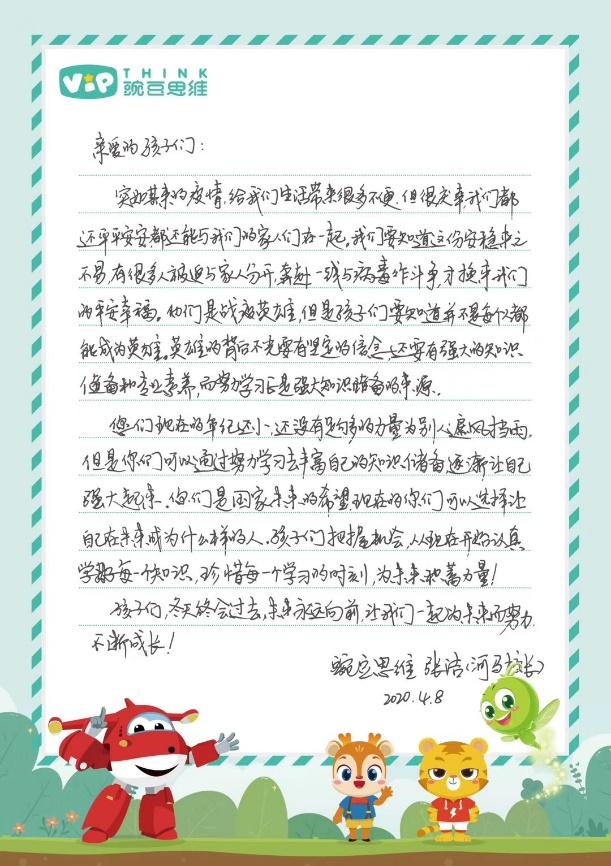 ViP THINK
豌豆思维
亲爱的孩子们：
突如其来的疫情，给我们生活带来很多不便，但很庆幸，我们都
还平平安安都还能与我们的家人们在一起。我们要知道这份安稳来之
不易，有很多人被迫与家人分开，奔赴一线与病毒作斗争，才换来我们
的平安幸福。他们是战疫英雄，但是孩子们要知道并不是每个人都
能成为英雄。英雄的背后不光要有坚定的信念，还要有强大的知识
储备和专业素养，而努力学习正是强大知识储备的来源。
你们现在的年纪还小，还没有足够多的力量为别人遮风挡雨，
但是你们可以通过努力学习去丰富自己的知识储备，逐渐让自己
强大起来。你们是国家未来的希望，现在的你们可以选择让
自己在未来成为什么样的人。孩子们把握机会，从现在开始认真
学好每一个知识，珍惜每一个学习的时刻，为未来积蓄力量！
孩子们，冬天终会过去，未来永远向前，让我们一起为未来而努力，
不断成长！
豌豆思维 张洁（河马校长）
2020.4.8